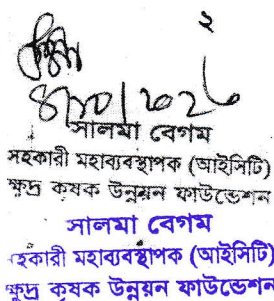 ২
সালমা বেগম
সহকারী মহাব্যবস্থাপক (আইসিটি)
ক্ষুদ্র কৃষক উন্নয়ন ফাউন্ডেশন
সালমা বেগম
হকারী মহাব্যবস্থাপক (আইসিটি)
ক্ষুদ্র কৃষক উন্নয়ন ফাউন্ডেশন